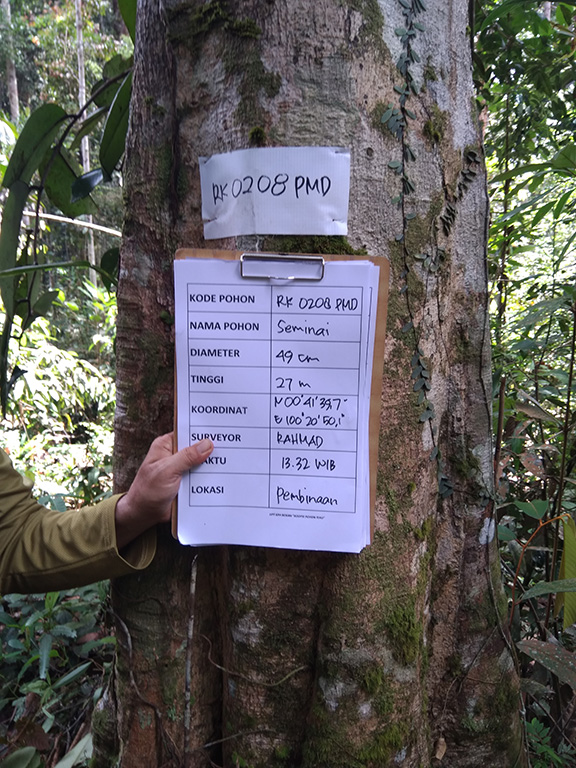 RK 0208 PMD
KODE POHON RK 0208 PMD
NAMA POHON Seminai
DIAMETER 49 cm
TINGGI 27 m
KOORDINAT N 00°41'39,7"
E 100°20'50,1"
SURVEYOR RAHMAD
WAKTU 13.32 WIB
LOKASI Pembinaan